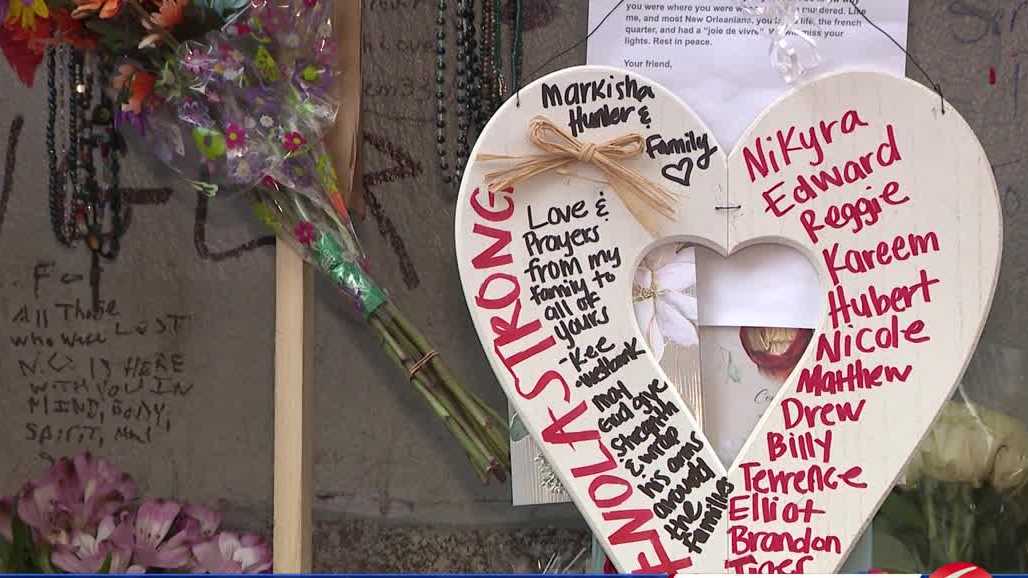 me, and most New Orleanians, you
life, the french
quarter, and had a "joie de vivre"
miss your
lights. Rest in peace.
Your friend,
Markisha
Hunter &
Family
Love &
Prayers
from my
family to
all of
yours
-Kee
-Westbank
may
God give
& wrap
his arms
around
the
families
#NOLA STRONG
NiKyra
Edward
Reggie
Kareem
Hubert
Nicole
Matthew
Drew
Billy
Terrence
Elliot
Brandon
Tiger
All Those
who were LOST
IS HERE
WITH YOU IN
MIND, BODY,
SPIRIT,